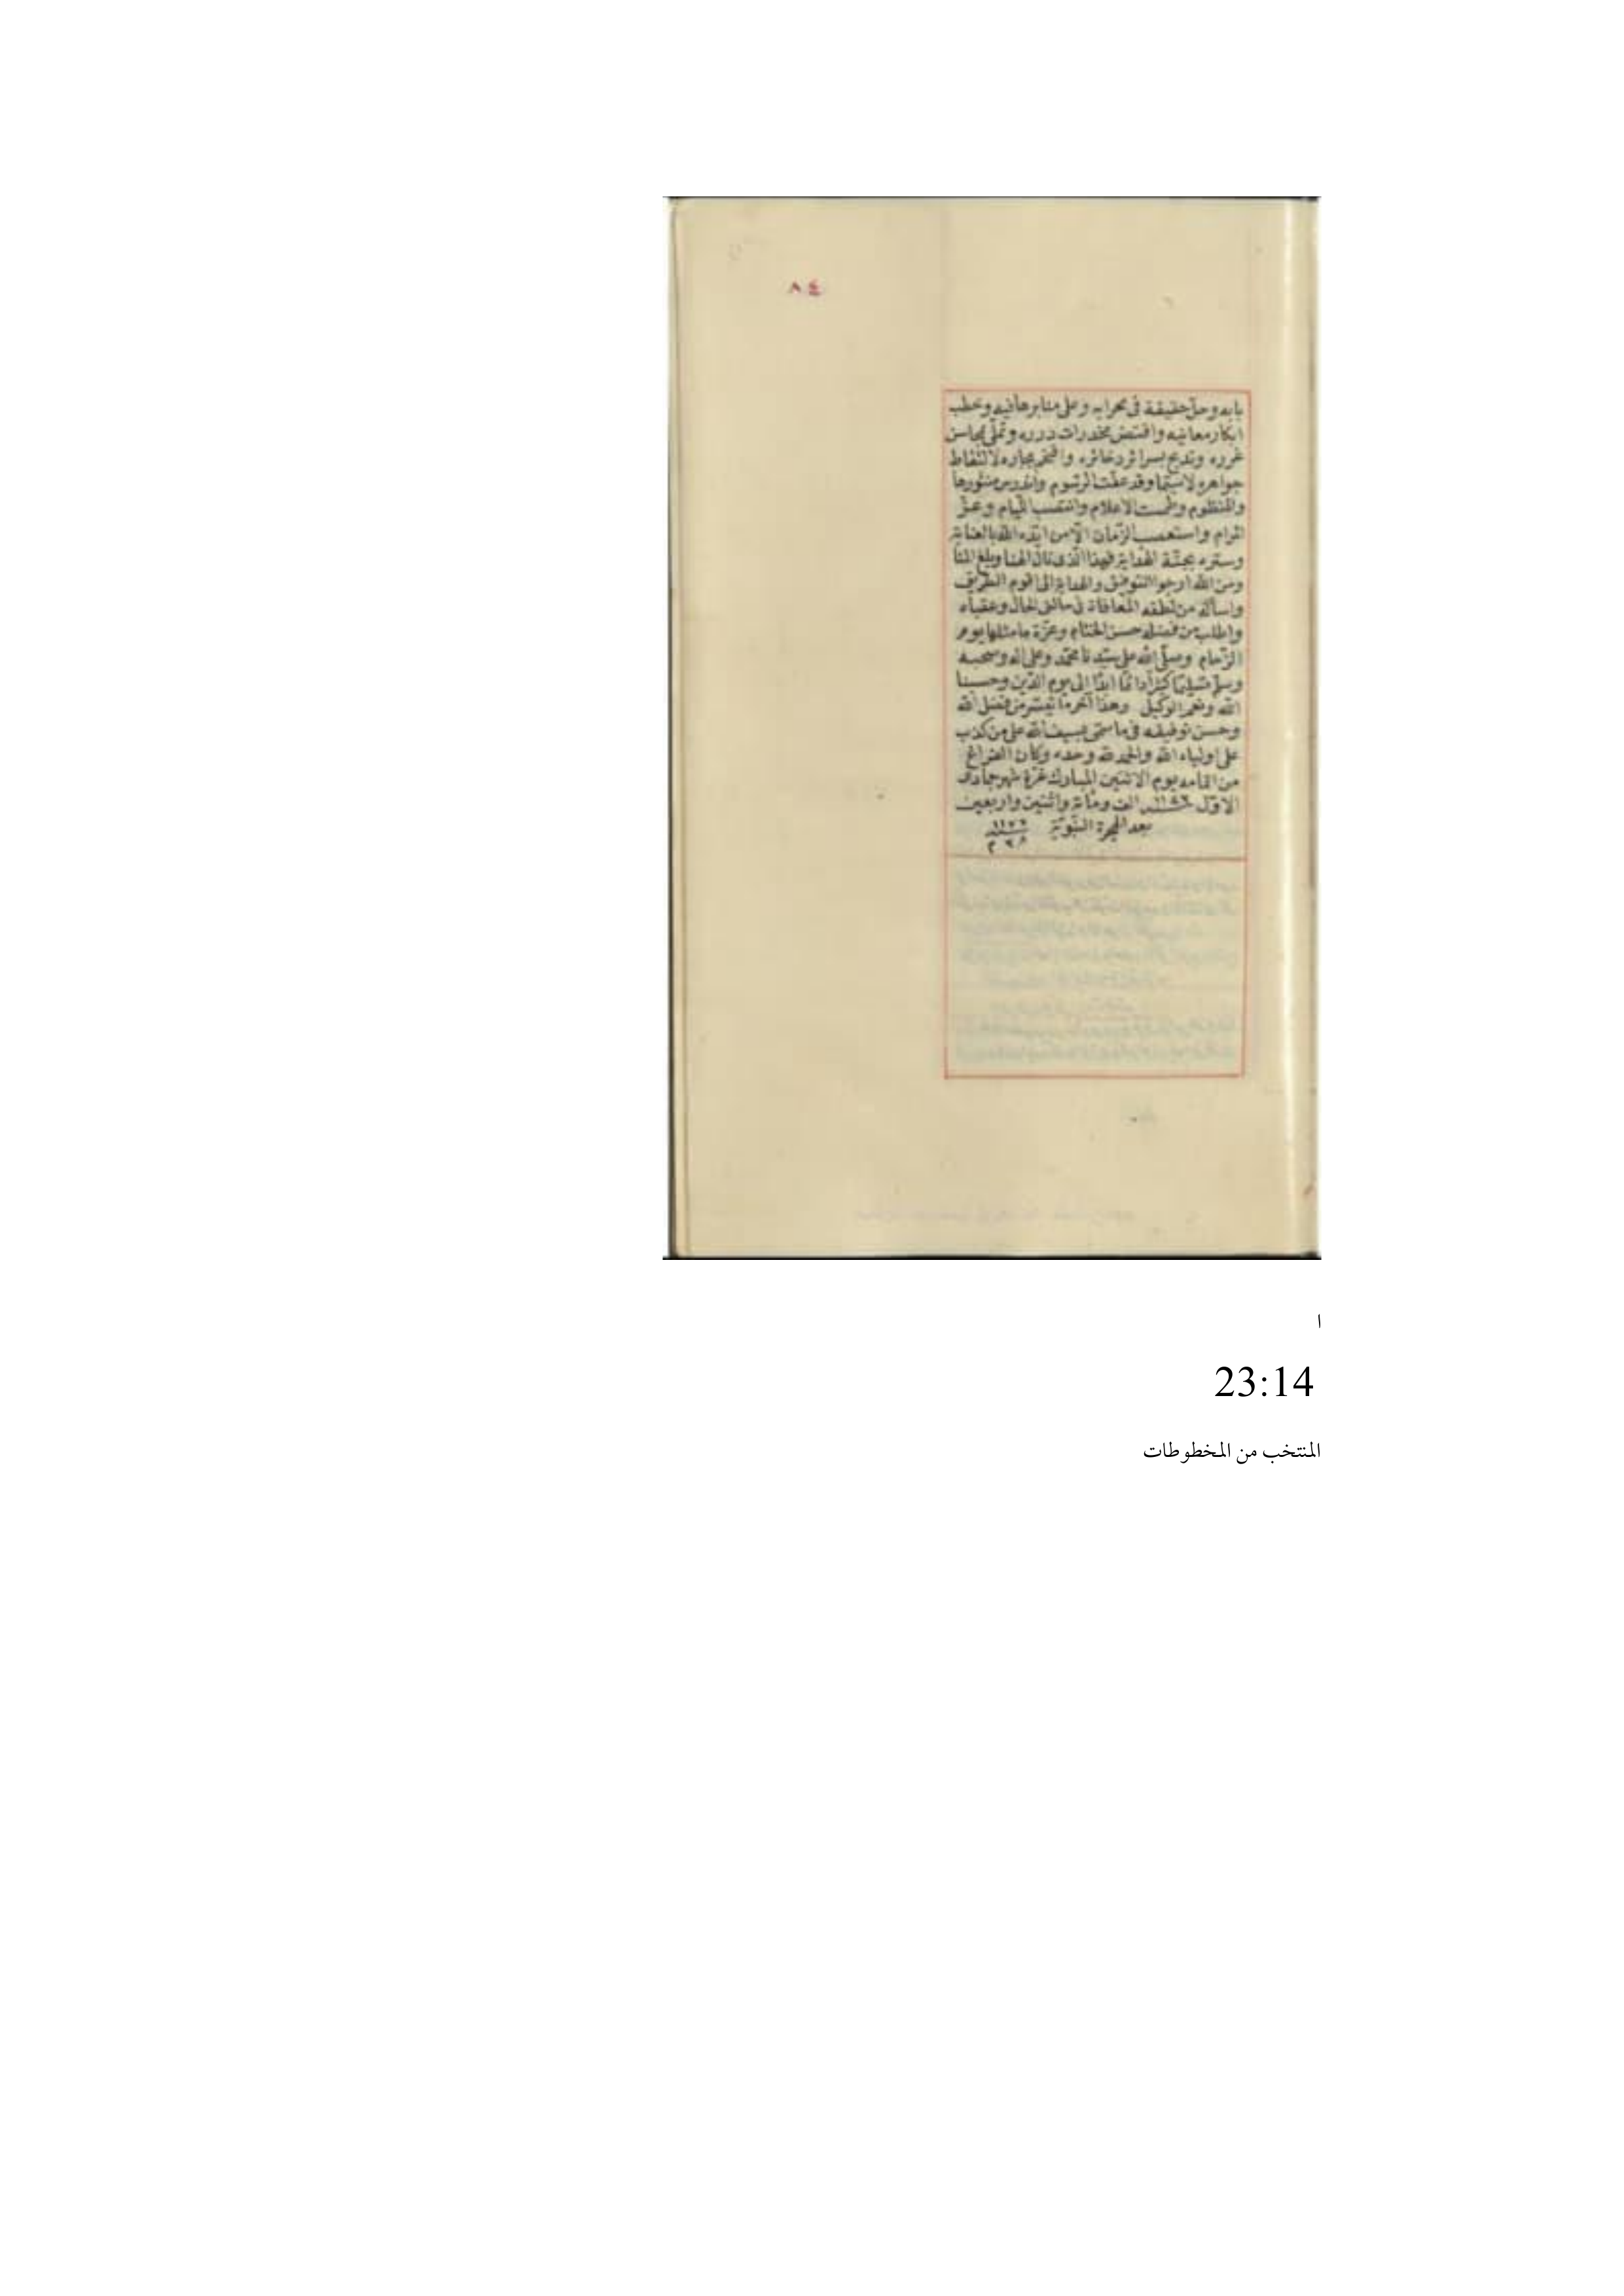 ٨٤
بابه وحل حقيقة في محرابه وعلى منابر هانيه وخطب
ابكار معانيه وافتض مخدرات درره وتملى بمحاسن
غرره وتدبج بسرائر ذخائره بحاره لالتقاط
جواهره لاسيما وقد عفت الرسوم واندرس منثورها
والمنظوم وطمست الاعلام وانتصب اللئام وعز
المرام واستعصب الزمان الا من ايده الله بالعناية
وستره بجنة الهداية فهذا الذى نال الهنا وبلغ المنا
ومن الله ارجو التوفيق والهداية الى اقوم الطريق
واسأله من لطفه المعافاة في الحال وعقباه
واطلب من فضله حسن الختام وعزة ما مثلها يوم
الزحام وصلى الله على سيدنا محمد وعلى اله وصحبه
وسلم تسليما كثيرا دائما ابدا الى يوم الدين وحسبنا
الله ونعم الوكيل وهذا آخر ما تيسر من فضل الله
وحسن توفيقه في ما سمى بسيف الله على من كذب
على اولياء الله والحمد لله وحده وكان الفراغ
من اتمامه يوم الاثنين المبارك غرة شهر جمادى
الاول سنة الف ومائة واثنين واربعين
بعد الهجرة النبوية
ا
23:14
المنتخب من المخطوطات